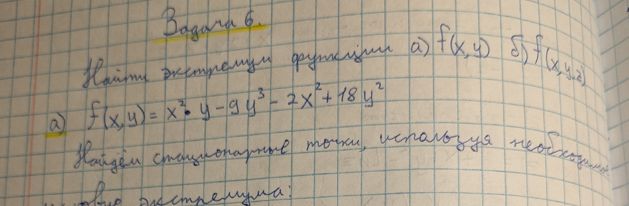 Задача 6.
Найти экстремум функции а) f(x,y) б) f(x,y,z)
а) f(x,y) = x²·y - 9y³ - 2x² + 18y²
Найдём стационарные точки, используя необходимое
условие экстремума: